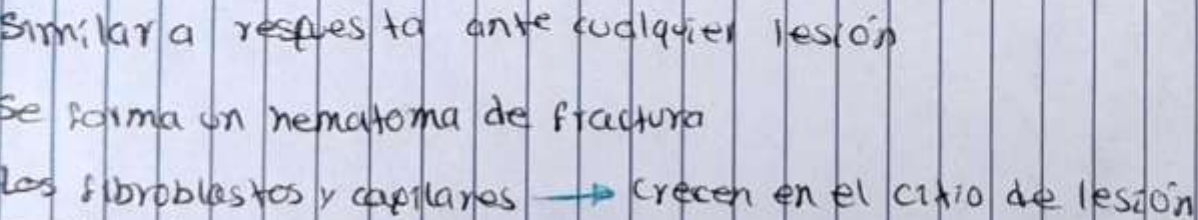 Similar a respuesta ante cualquier lesión
Se forma un hematoma de fractura
Los fibroblastos y capilares → crecen en el citio de lesión